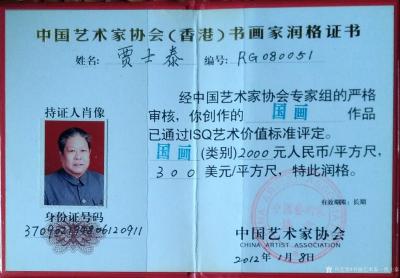 中国艺术家协会(香港)书画家润格证书
姓名: 贾士泰 编号: RG080051
持证人肖像
身份证号码
经中国艺术家协会专家组的严格
审核,你创作的 国画 作品
已通过ISQ艺术价值标准评定。
国画 (类别)2000元人民币/平方尺,
300美元/平方尺,特此润格。
有效期限:长期
中国艺术家协会
CHINA ARTIST ASSOCIATION
2012年1月8日